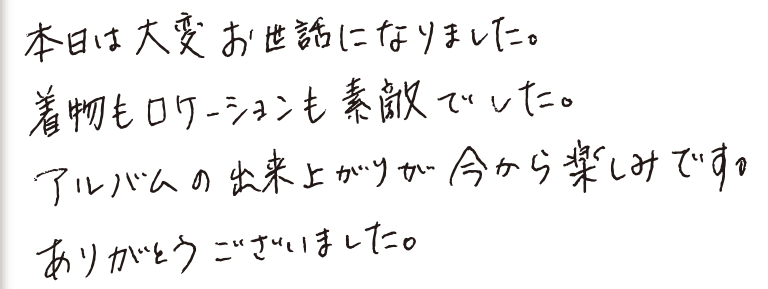 本日は大変お世話になりました。
着物もロケーションも素敵でした。
アルバムの出来上がりが今から楽しみです。
ありがとうございました。